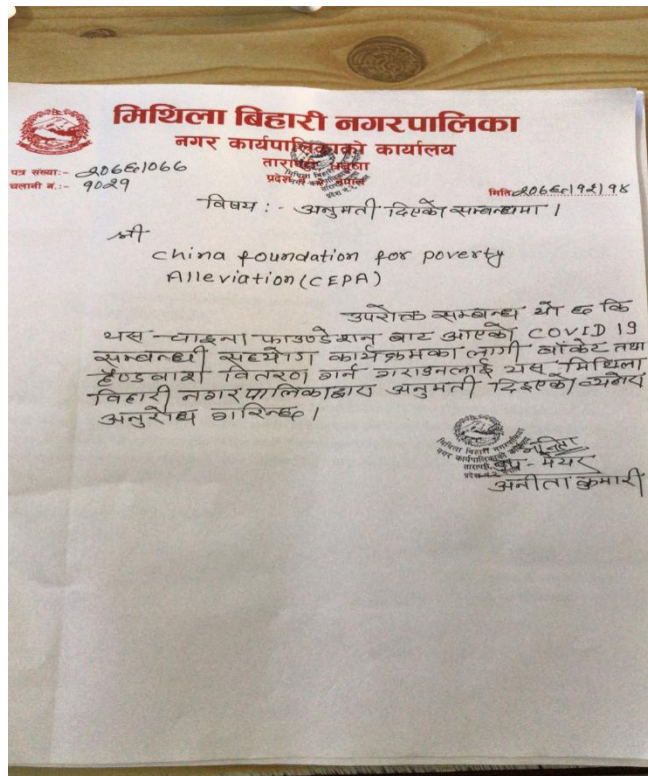 मिथिला बिहारी नगरपालिका
नगर कार्यपालिकाको कार्यालय
तारापट्टी, धनुषा
प्रदेश नं. २, नेपाल
पत्र संख्याः- २०७६।०७७
चलानी नं.:- १०२१
मिति २०७६।१२।१४
विषय :- अनुमती दिएको सम्बन्धमा ।
श्री
China foundation for poverty
Alleviation (CEPA)
उपरोक्त सम्बन्ध यो छ कि
यस चाइना फाउण्डेशन बाट आएको COVID 19
सम्बन्धी सहयोग कार्यक्रमका लागी बाॅकेट तथा
हैण्डवाश वितरण गर्न गराउनलाई यस मिथिला
विहारी नगरपालिकाद्वारा अनुमती दिइएको व्यहोरा
अनुरोध गरिन्छ ।
मिथिला बिहारी नगरपालिका
नगर कार्यपालिकाको कार्यालय
उप-मेयर
अनीता कुमारी